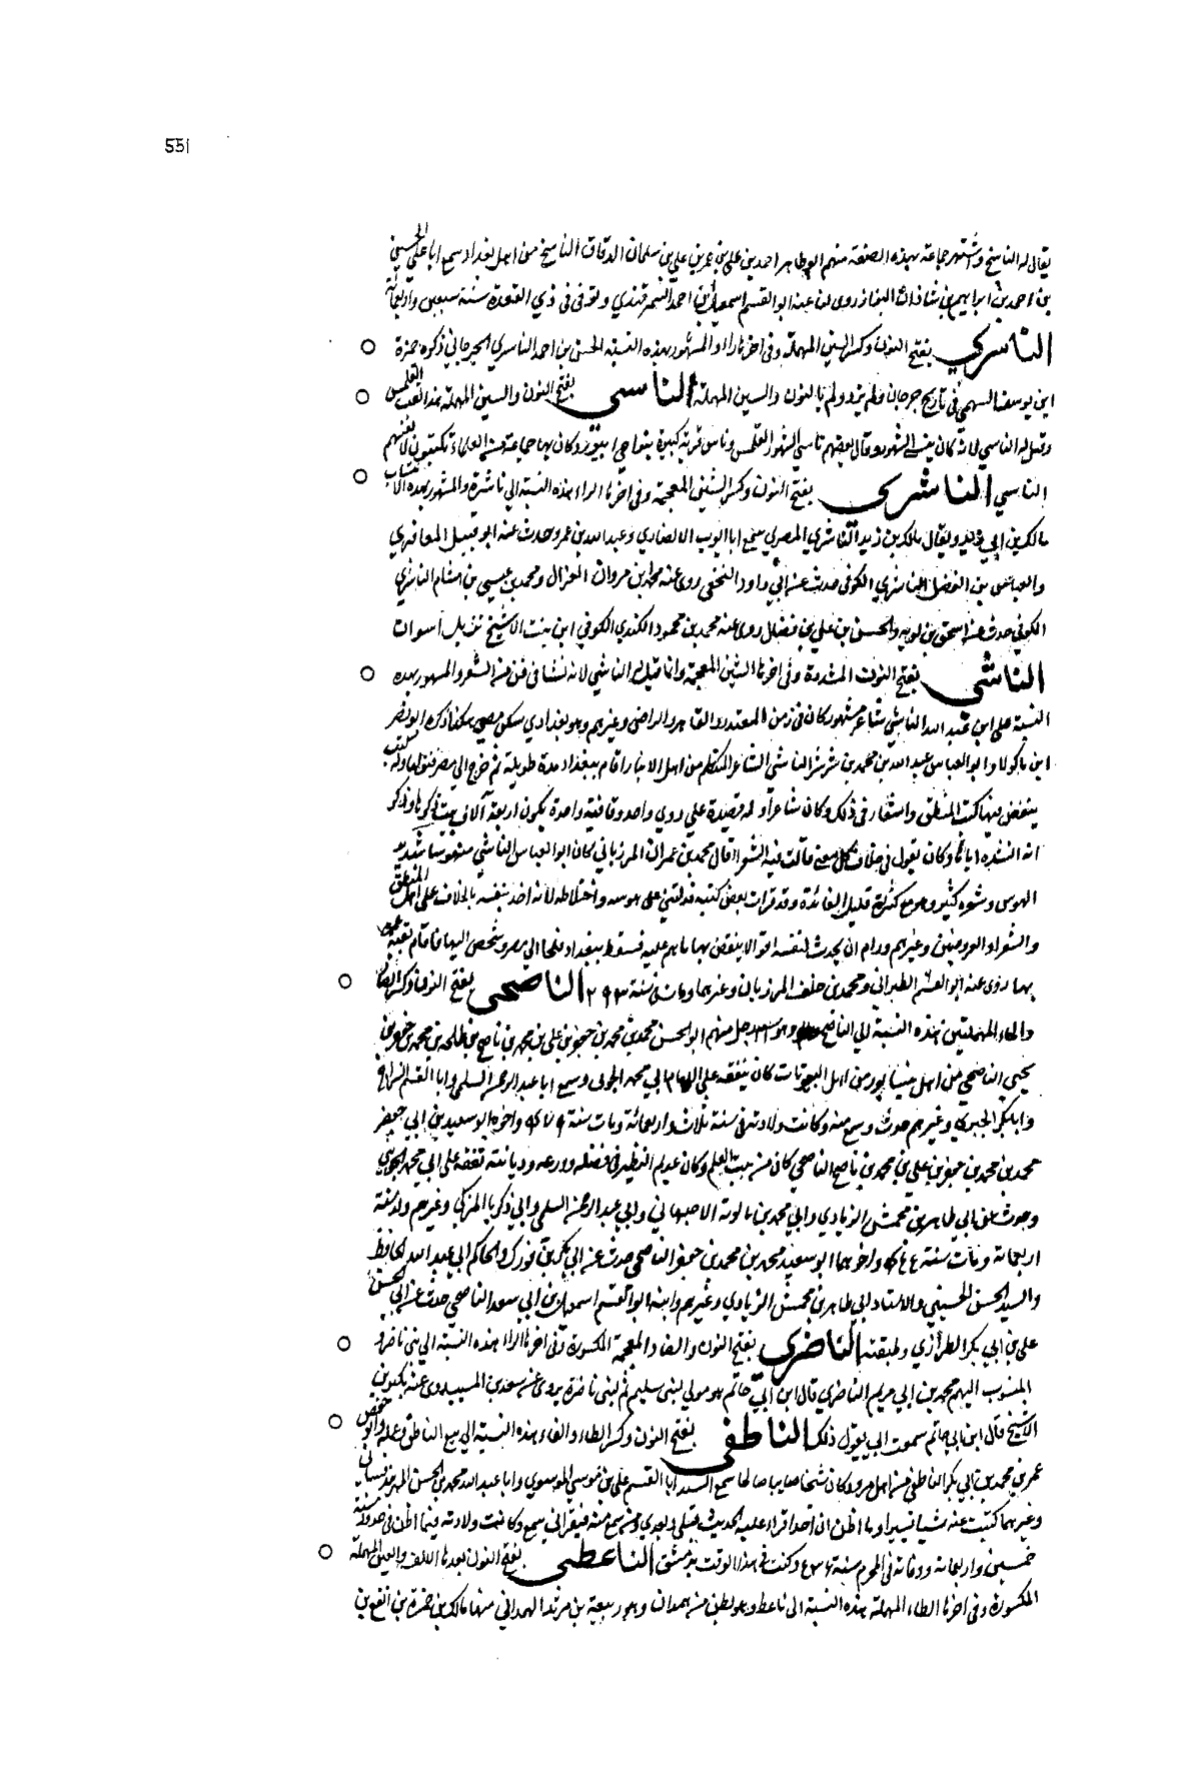 551
يقال له الناسخ واشتهر جماعة بهذه الصنعة منهم ابو طاهر احمد بن علي بن عمر بن علي بن سلمان الدقاق الناسخ من اهل بغداد سمع ابا علي الحسن
بن احمد بن ابراهيم بن شاذان البزاز روى لنا عنه ابو القسم اسمعيل بن احمد السمرقندي وتوفي في ذي القعدة سنة سبعين واربعمائة
الناسري بفتح النون وكسر السين المهملة وفي اخرها راء والمشهور بهذه النسبة الحسن بن احمد الناسري الجرجاني ذكره حمزة
ابن يوسف السهمي في تاريخ جرجان ولم يزد ولم بالنون والسين المهملة الناسي بفتح النون والسين المهملة القلمس
وقيل له الناسي لانه كان ينسي الشهور وقال بعضهم ناسي الشهور القلمس وناس قرية كبيرة بنواحي ابيورد وكان بها جماعة من العلماء يكتبون لانفسهم
الناسي الناشري بفتح النون وكسر الشين المعجمة وفي اخرها الراء هذه النسبة الى ناشرة والمشهور بهذه الانتساب
مالك بن ويقال مالك بن زيد الناشري المصري سمع ابا ايوب الانصاري وعبد الله بن عمرو حدث عنه ابو قبيل المعافري
والعباس بن الفضل الناشري الكوفي حدث عن ابي داود النخعي روى عنه محمد بن مروان الغزال ومحمد بن عيسى بن هشام الناشري
الكوفي حدث عن اسحق بن والحسن بن علي بن فضال روى عنه محمد بن محمود الكندي الكوفي ابن بنت الاشج نزيل اسوان
الناشي بفتح النون المشددة وفي اخرها الشين المعجمة وانما قيل له الناشي لانه نشا في فن من الشعر والمشهور بهذه
النسبة علي ابن عبد الله الناشي شاعر مشهور كان في زمن المقتدر والقاهر والراضي وغيرهم وهو بغدادي سكن مصر هكذا ذكره ابو نصر
ابن ماكولا وابو العباس عبد الله بن محمد بن شرشر الناشي الشاعر المتكلم من اهل الانبار اقام ببغداد مدة طويلة ثم خرج الى مصر فنزلها وله كتب
ينقض فيها كتب المنطق واشعار في ذلك وكان شاعرا وله قصيدة على روي واحد وقافية واحدة يكون اربعة آلاف بيت
انه انشده اياها وكان يقول في خلاف كل معنى قالت فيه الشعراء قال محمد بن عمران المرزباني كان ابو العباس الناشي متهوسا شديد
الهوس وشعره كثير وهو مع كثرته قليل الفائدة وقد قرات بعض كتبه فدلتني على هوسه واختلاطه لانه اخذ نفسه بالخلاف على اهل المنطق
والشعراء والعروضيين وغيرهم ورام ان يحدث لنفسه اقوالا ينقض بها ما هم عليه فسقط ببغداد فلجا الى مصر وشخص اليها فاقام بقية عمره
بها روى عنه ومحمد بن خلف المرزبان وغيرهما ومات سنة ٢٩٣ الناصحي بفتح النون وكسر الصاد
والحاء المهملتين هذه النسبة الى الناصح وهو اسم رجل منهم ابو الحسن محمد بن محمد بن جعفر بن علي بن محمد بن ناصح بن طلحة بن محمد بن جعفر بن
يحيى الناصحي من اهل نيسابور من اهل البيوتات كان تفقه على الامام ابي محمد الجويني وسمع ابا عبد الرحمن السلمي وابا القسم السراج
وابا بكر الحيري وغيرهم حدث وسمع منه وكانت ولادته في سنة ثلاث واربعمائة ومات سنة ٤٧٩ واخوه ابو سعيد بن ابي جعفر
محمد بن محمد بن جعفر بن علي بن محمد بن ناصح الناصحي كان من بيت العلم وكان عديم النظير في فضله وورعه وديانته تفقه على ابي محمد الجويني
وحدث عن ابي طاهر بن محمش الزيادي وابي محمد بن بالويه الاصبهاني وابي عبد الرحمن السلمي وابي زكريا المزكي وغيرهم ولد سنة
اربعمائة ومات سنة واخوهما ابو سعيد محمد بن محمد بن جعفر الناصحي حدث عن ابي بكر بن فورك والحاكم ابي عبد الله الحافظ
والسيد الحسن الحسيني والاستاد ابي طاهر بن محمش الزيادي وغيرهم وابنه ابو القسم اسمعيل بن ابي سعد الناصحي حدث عن ابي الحسن
علي بن ابي بكر الطرازي وطبقته الناضري بفتح النون والضاد المعجمة المكسورة وفي اخرها الراء هذه النسبة الى بني ناضرة
المنسوب اليهم محمد بن ابي مريم الناضري قال ابن ابي حاتم هو مولى لبني سليم ثم لبني ناضرة يروي عن سعيد بن المسيب روى عنه بكير بن
الاشج قال ابن ابي حاتم سمعت ابي يقول ذلك الناطفي بفتح النون وكسر الطاء والفاء هذه النسبة الى بيع الناطف وعمله وابو حفص
عمر بن محمد بن ابي بكر الناطفي من اهل مرو وكان شيخا صالحا سمع السيد ابا القسم علي بن موسى الموسوي وابا عبد الله محمد بن الحسن المهربندقشائي
وغيرهما كتبت عنه شيئا يسيرا وما اظن ان احدا قرا عليه الحديث قبلي وبعدي سمع وكانت ولادته فيما اظن في حدود سنة
خمسين واربعمائة ووفاته في المحرم سنة وكنت في هذا الوقت بدمشق الناعطي بفتح النون بعدها الالف والعين المهملة
المكسورة وفي اخرها الطاء المهملة هذه النسبة الى ناعط وهو بطن من همدان وهو ربيعة بن مرثد الهمداني منها مالك بن حمزة بن ايفع بن